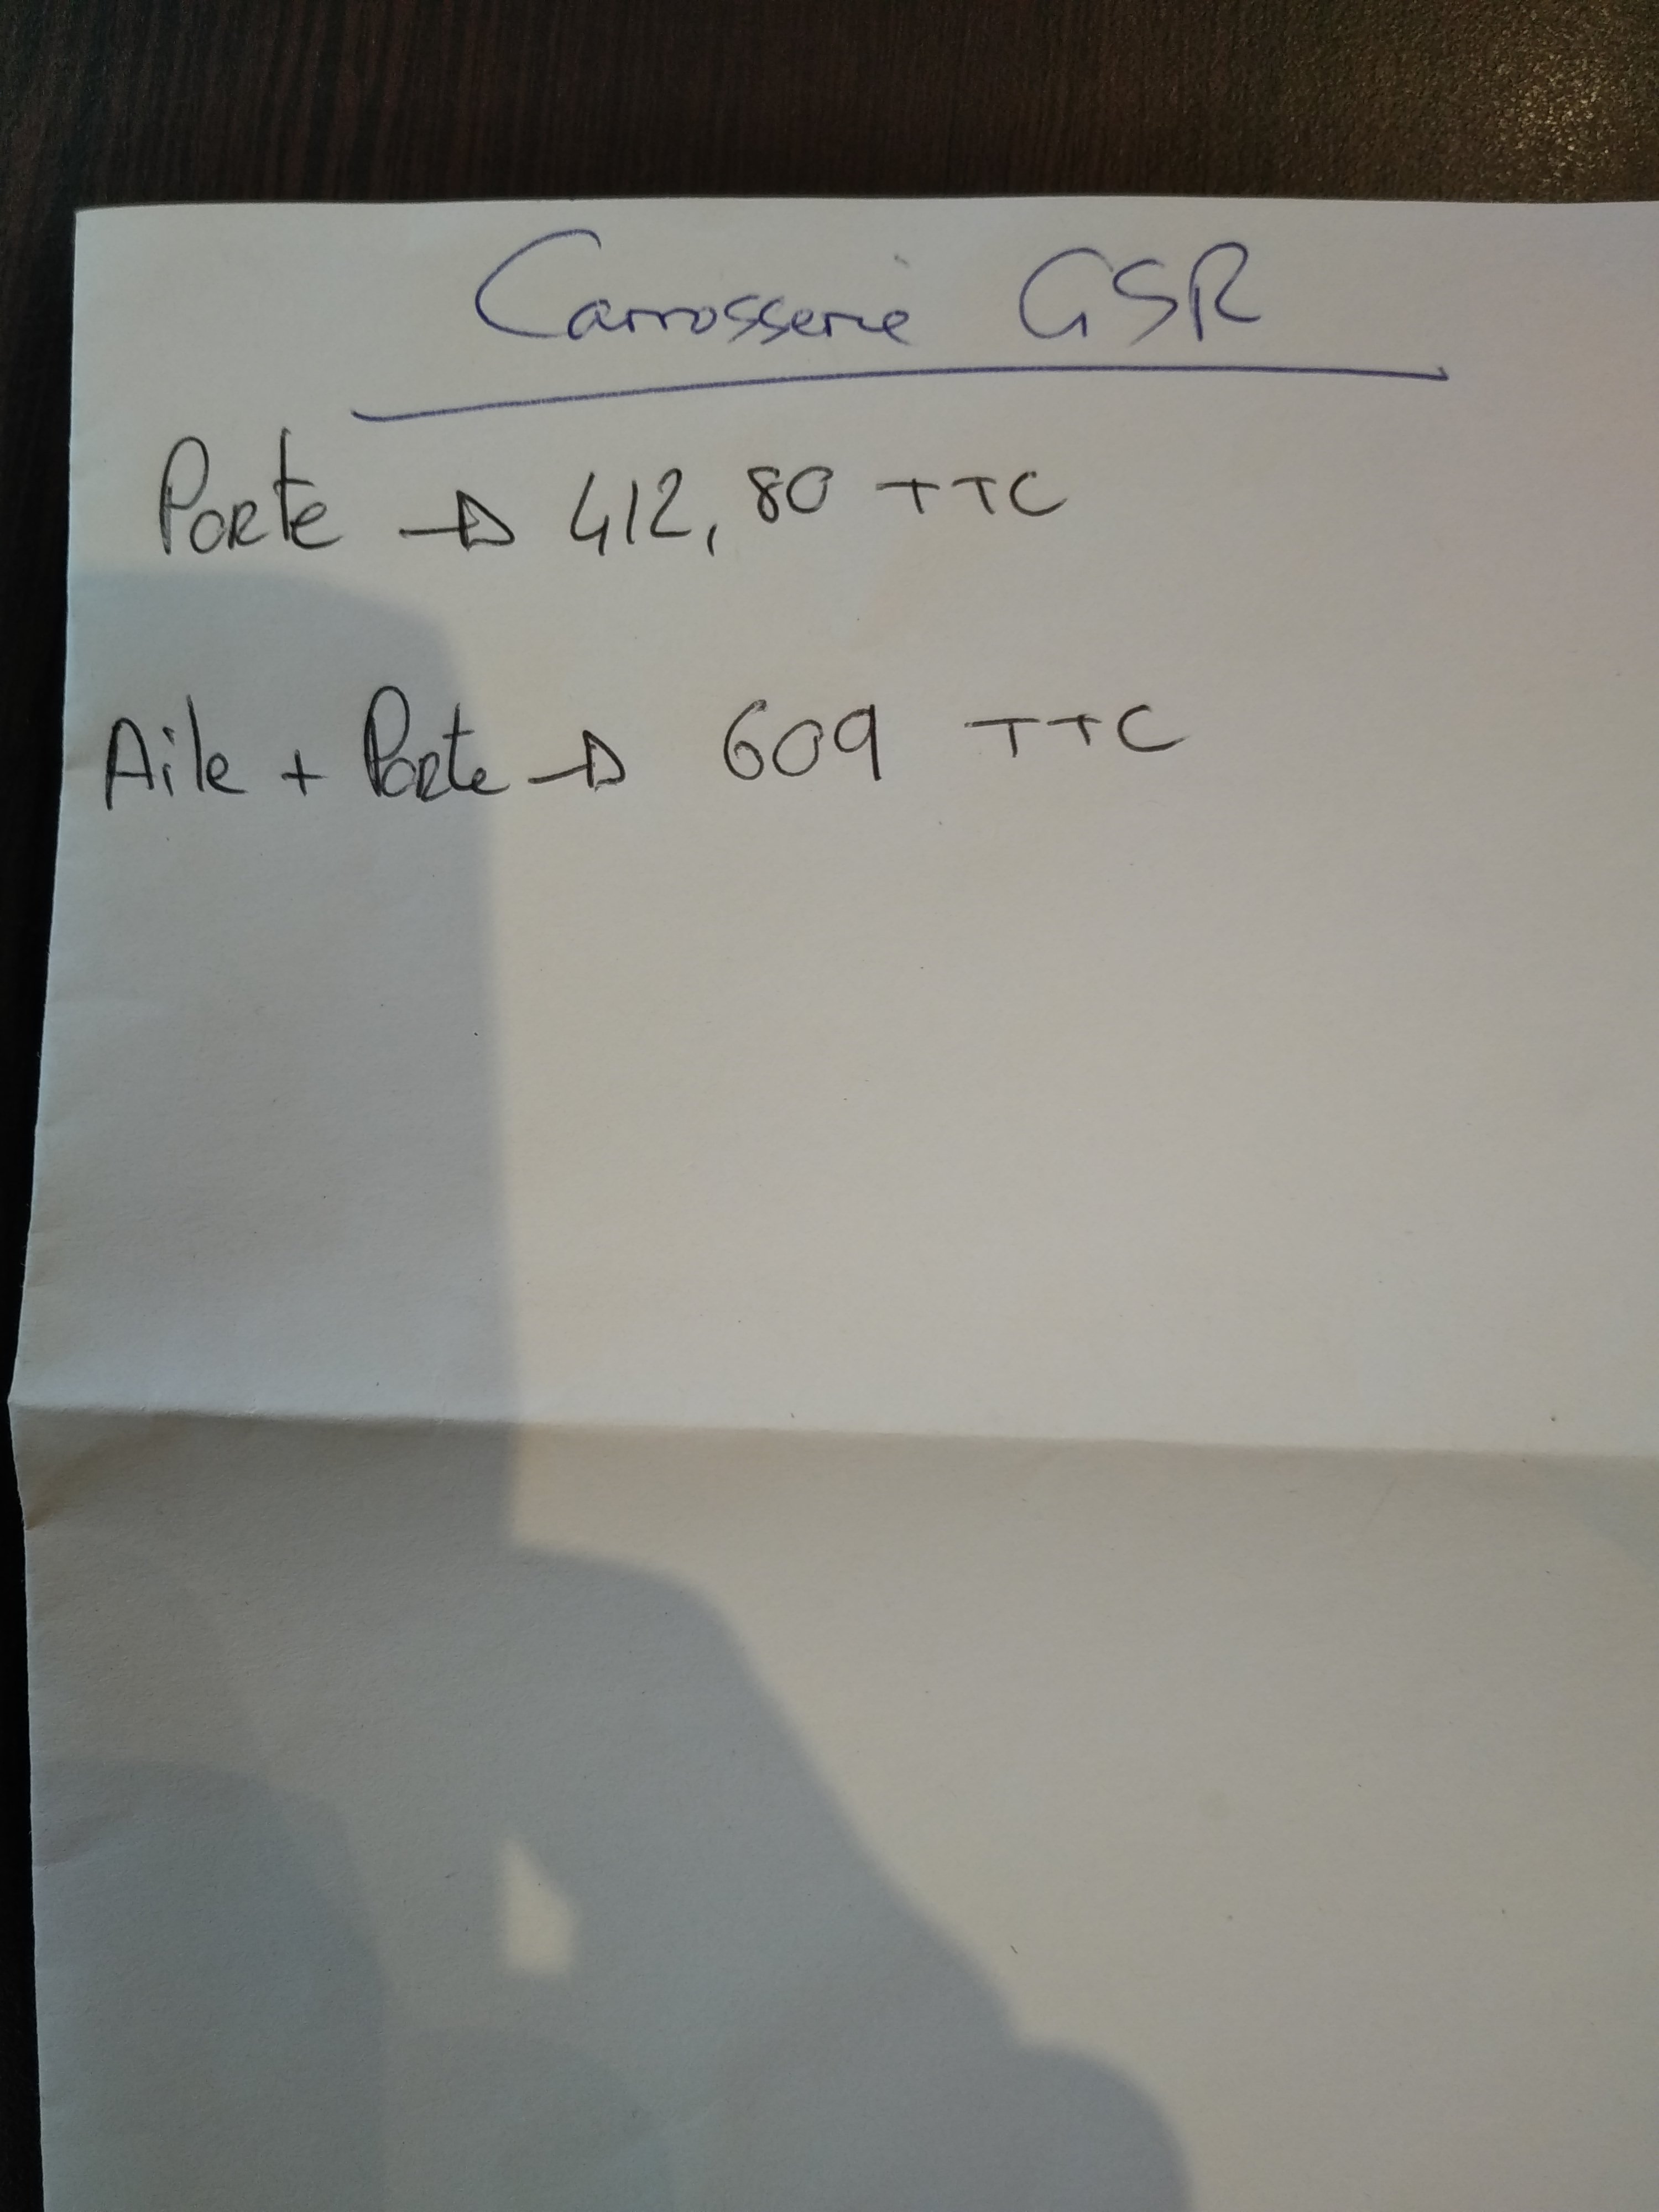 Carrosserie GSR
Porte → 412,80 TTC
Aile + Porte → 609 TTC